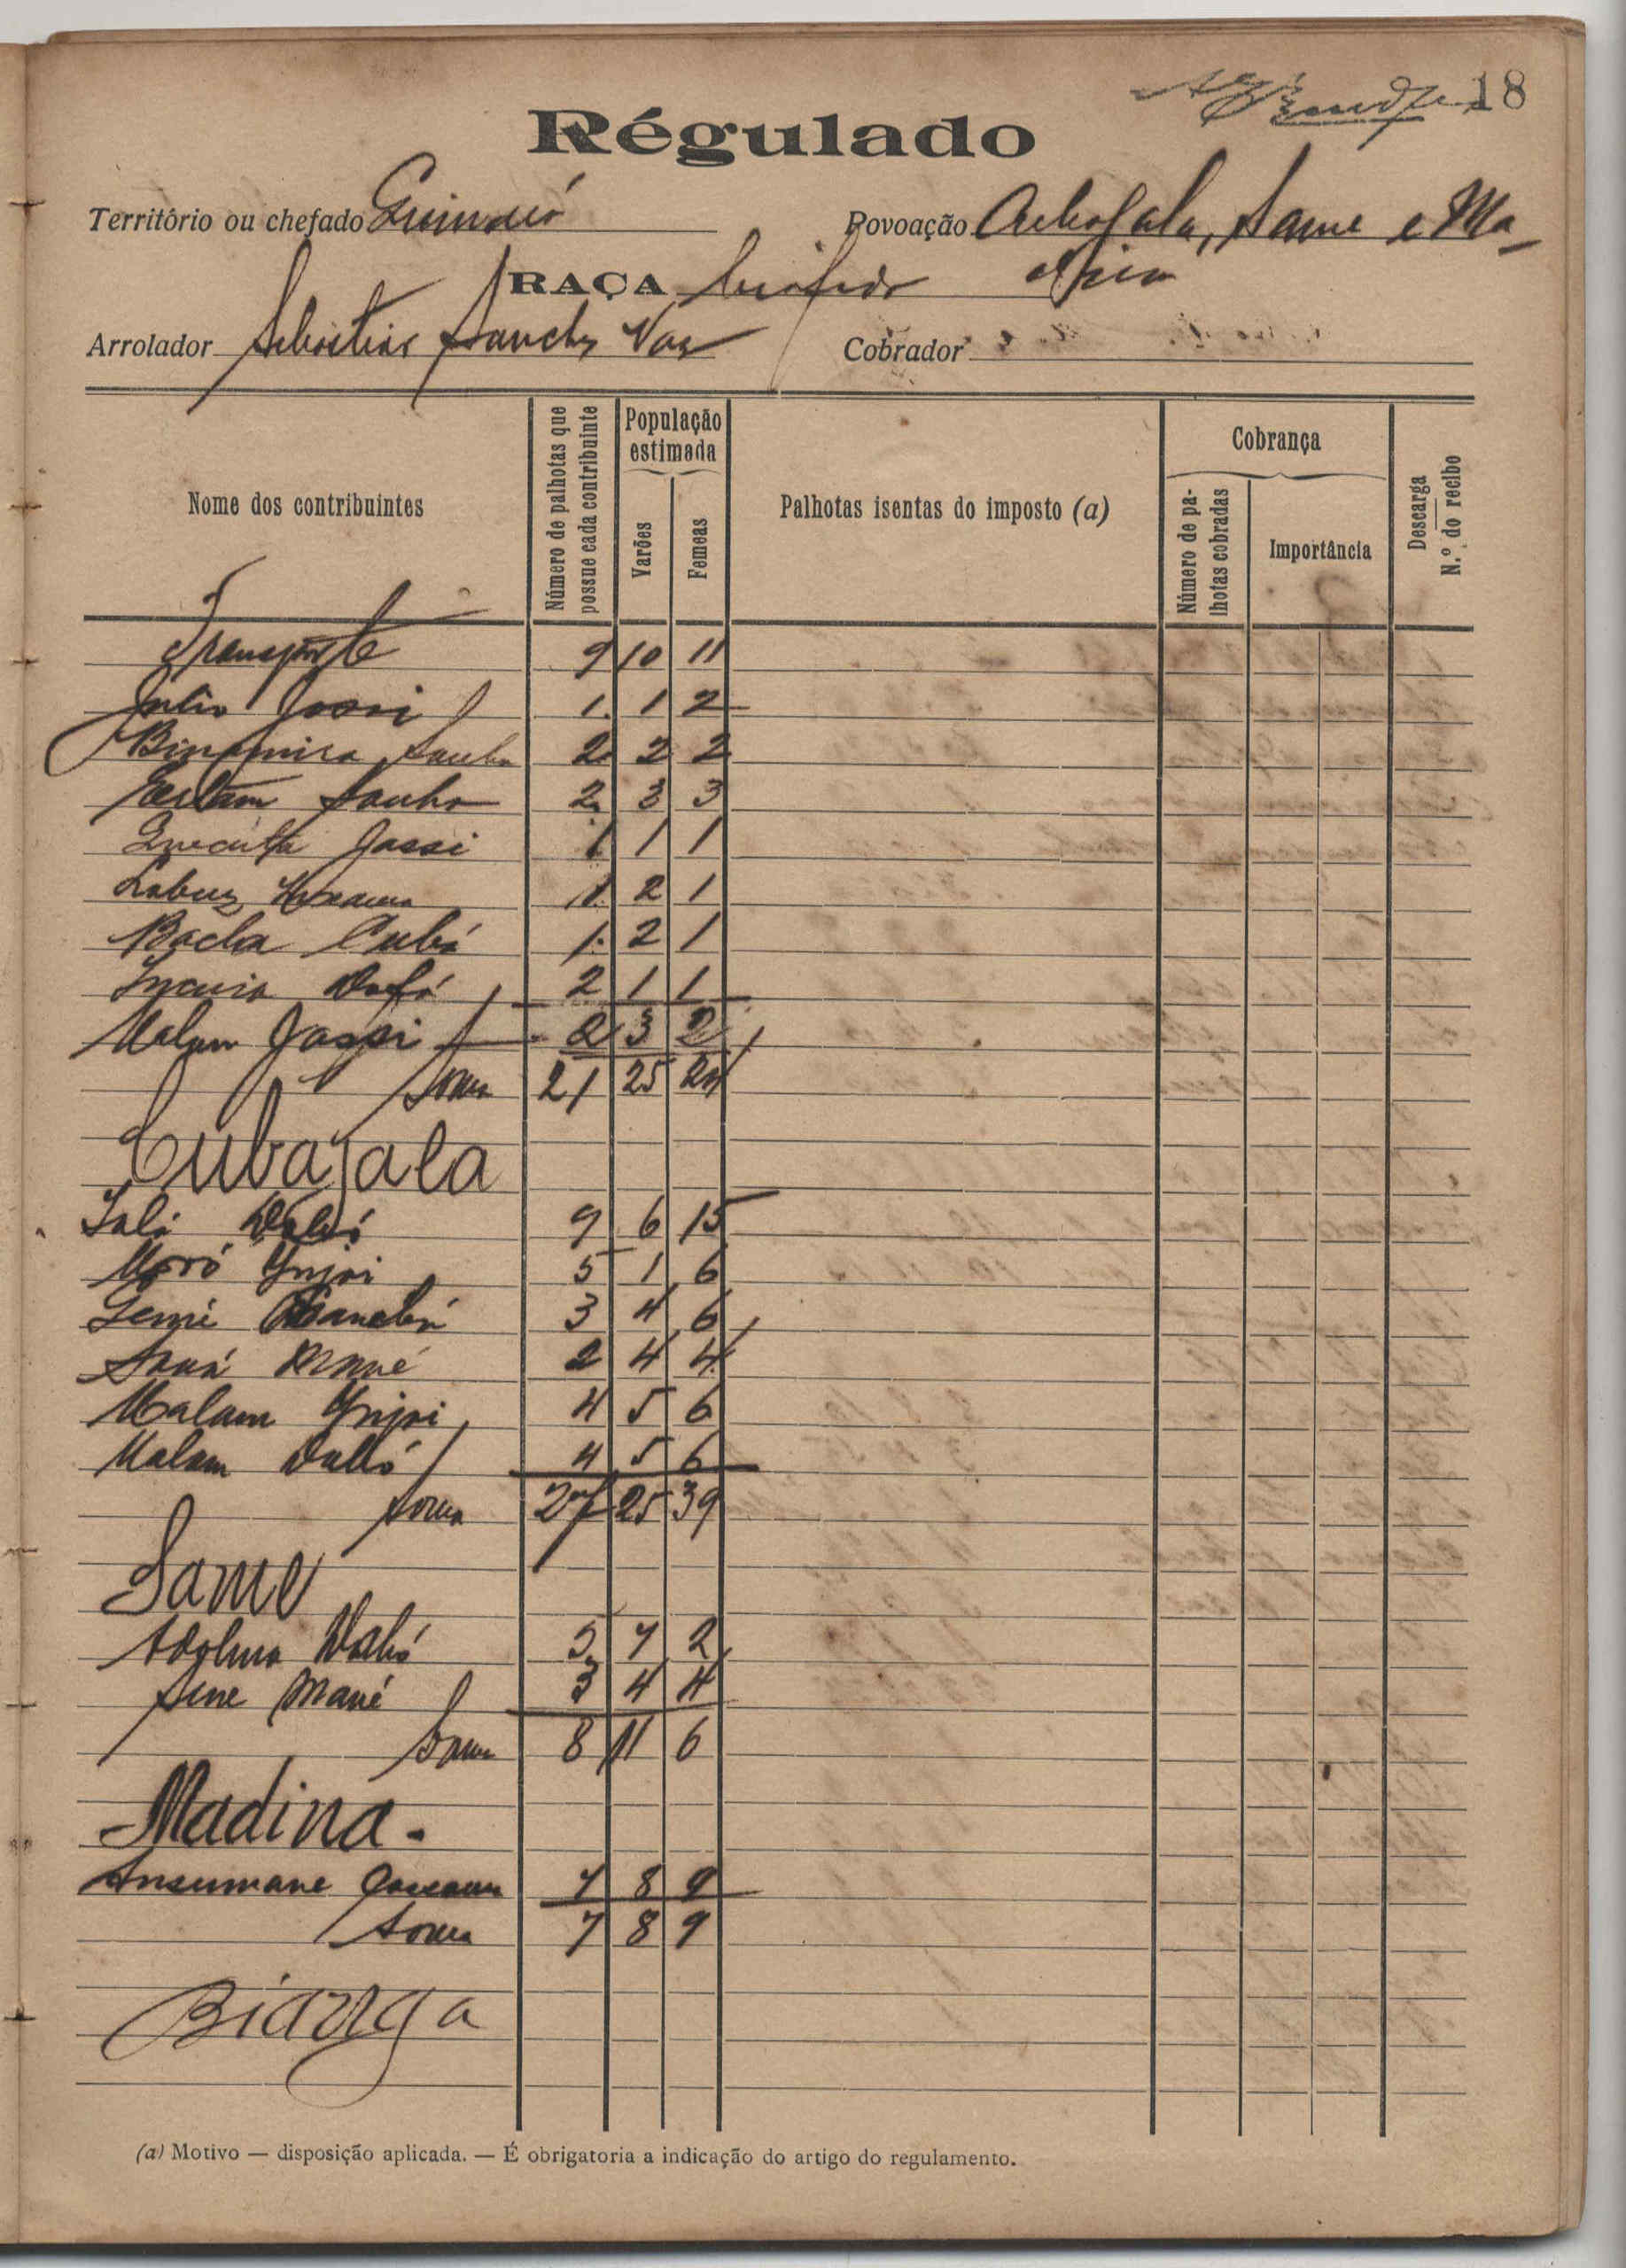 18
Régulado
Território ou chefado
Povoação Cubajala, Same e Ma-
RAÇA Biafada dina
Arrolador Sebastião Sanches Vaz Cobrador
Nome dos contribuintes
Número de palhotas que possue cada contribuinte
População estimada
Varões
Femeas
Palhotas isentas do imposto (a)
Cobrança
Número de palhotas cobradas
Importância
Descarga
N.º do recibo
Transporte 9 10 11
Julio Jassi 1 1 2
Sanha 2 2 2
Sanha 2 3 3
Quecuta Jassi 1 1 1
1 2 1
Bacba 1 2 1
2 1 1
Malam Jassi 2 3 2
Soma 21 25 24
Cubajala
Dabó 9 6 15
5 1 6
3 4 6
Mané 2 4 4
Malam 4 5 6
Malam Dabó 4 5 6
Soma 27 25 39
Same
Dabó 5 7 2
Mané 3 4 4
Soma 8 11 6
Madina.
Ansumane 7 8 9
Soma 7 8 9
Bianga
(a) Motivo — disposição aplicada. — É obrigatoria a indicação do artigo do regulamento.